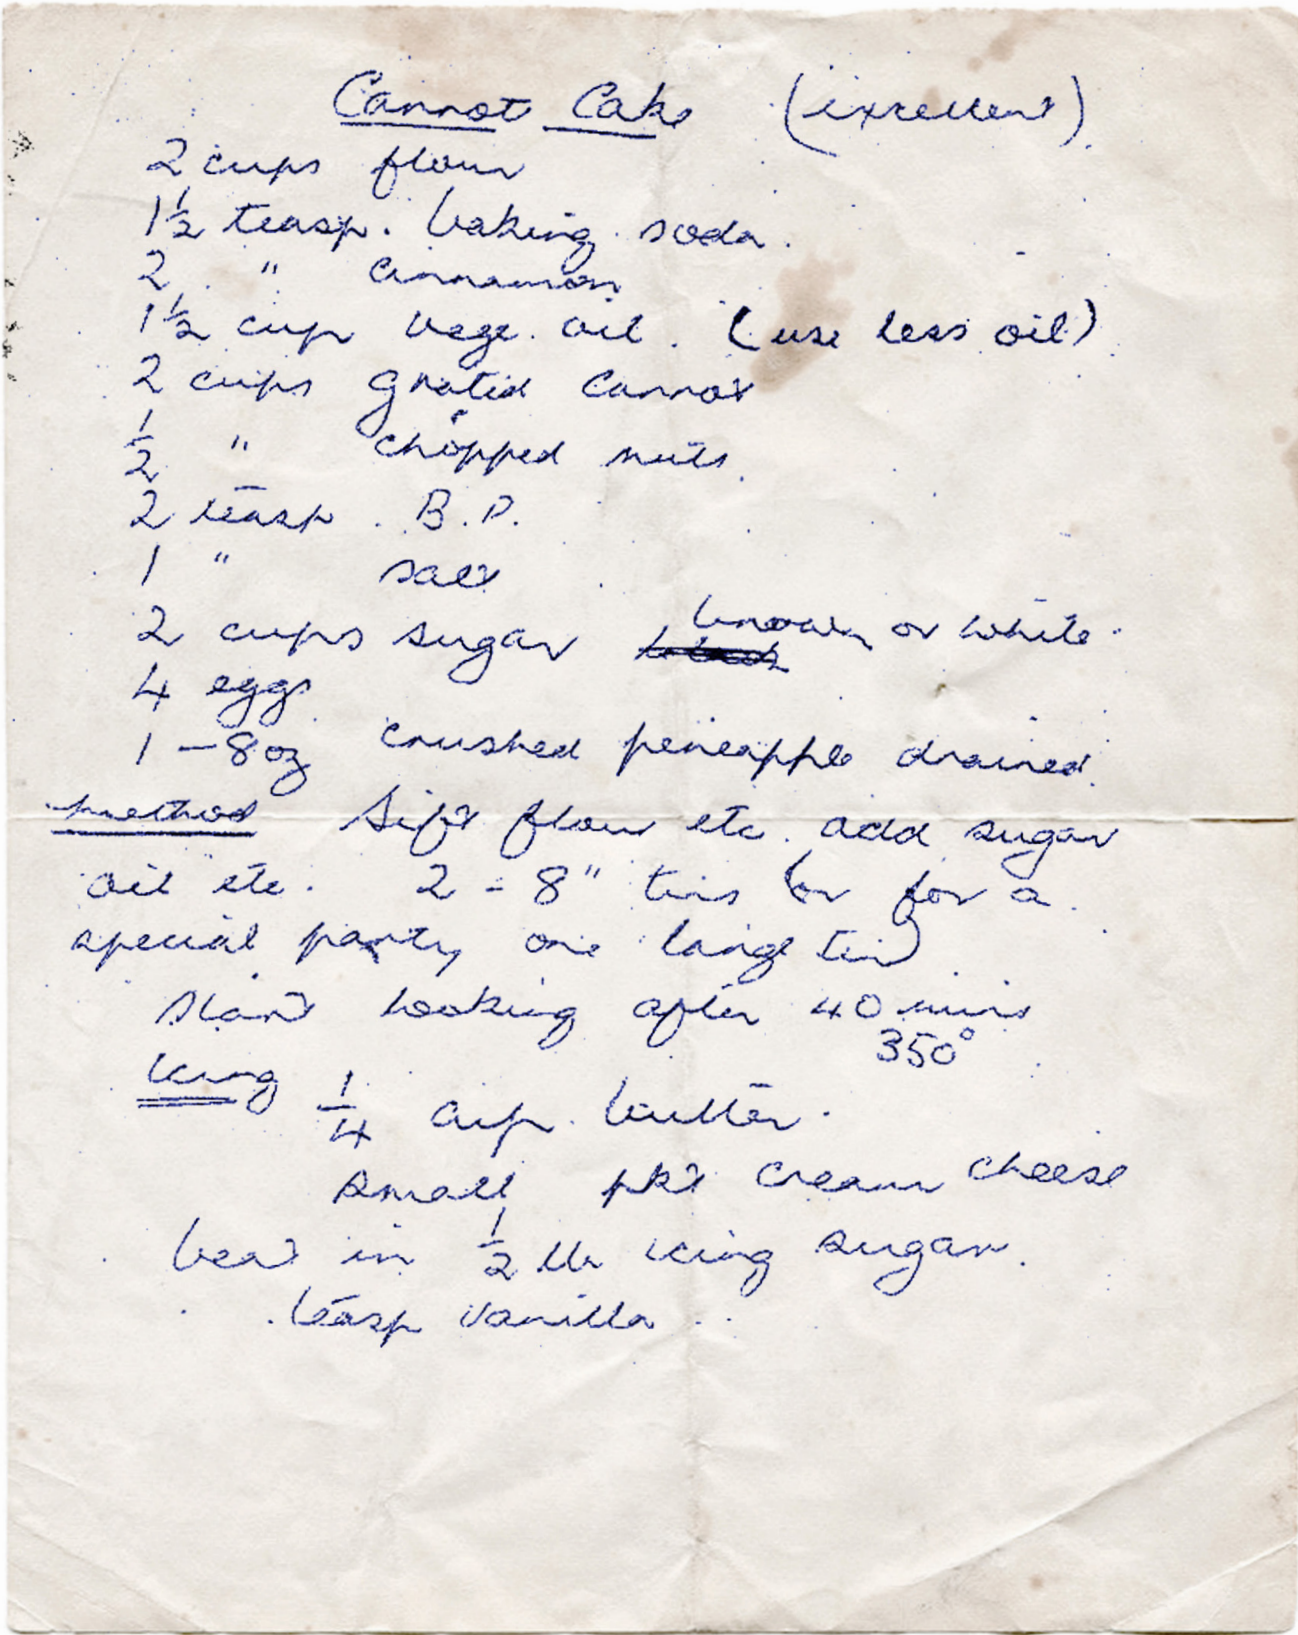 Carrot Cake (excellent)
2 cups flour
1½ teasp. baking soda.
2 " cinnamon
1½ cup vege. oil. (use less oil)
2 cups grated carrot
½ " chopped nuts.
2 teasp. B.P.
1 " salt
2 cups sugar brown or white.
4 eggs
1 - 8oz crushed pineapple drained.
method Sift flour etc. add sugar
oil etc. 2 - 8" tins (or for a
special party one large tin)
Start looking after 40 mins
350°
Icing ¼ cup butter.
small pkt cream cheese
beat in ½ lb icing sugar.
teasp vanilla